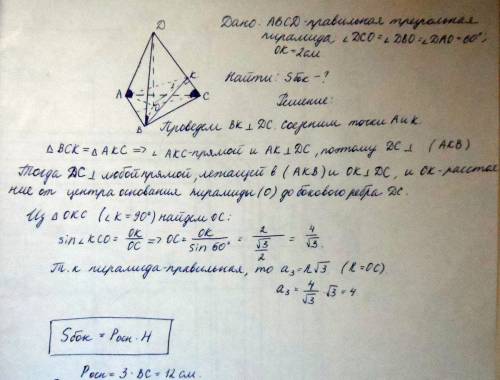 D
K
A
C
O
B
Дано: ABCD-правильная треугольная
пирамида ∠DCO=∠DBO=∠DAO=60°,
OK=2см
Найти: Sбок-?
Решение:
Проведем BK⊥DC. Соединим точки A и K.
△BCK=△AKC => ∠AKC-прямой и AK⊥DC, поэтому DC⊥ (AKB)
Тогда DC⊥ любой прямой, лежащей в (AKB) и OK⊥DC, и OK-расстоя
ние от центра основания пирамиды (O) до бокового ребра DC.
Из △OKC (∠K=90°) найдем OC:
sin∠KCO= OK/OC => OC= OK/sin 60° = 2/(√3/2) = 4/√3.
Т.к пирамида-правильная, то a₃=R√3 (R=OC)
a₃= 4/√3 ·√3=4
Sбок = Pосн · H
Pосн = 3·BC=12см.